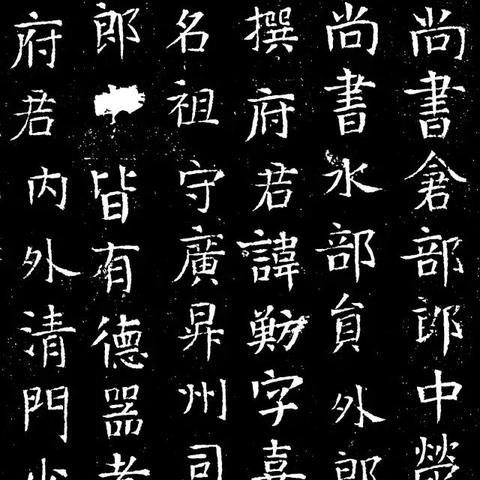 尚書倉部郎中滎
尚書水部員外郎
撰府君諱字喜
名祖守廣昇州司
郎皆有德器者
府君內外清門少